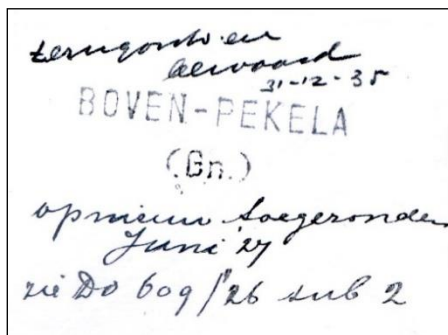 terugontv en
bewaard
31-12-35
BOVEN-PEKELA
(Gn.)
opnieuw toegezonden
Juni '27
zie Do 609/'26 sub 2